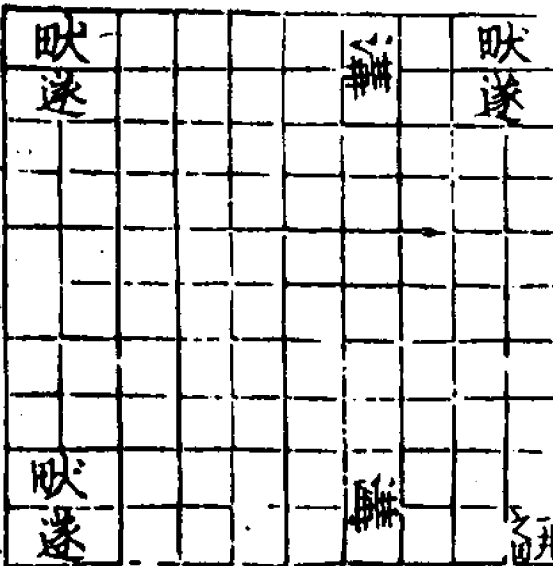 畎遂
溝
畎遂
畎遂